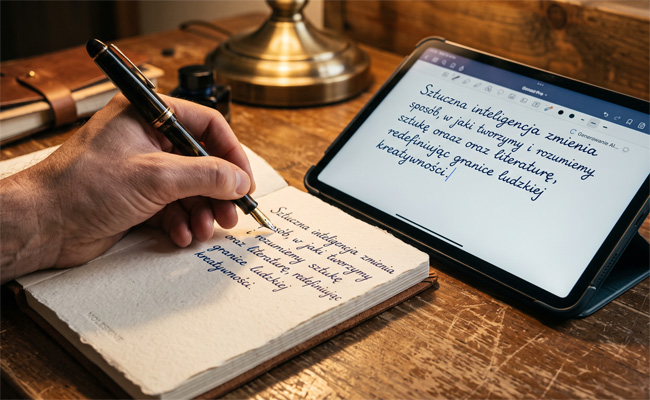 Sztuczna inteligencja zmienia
sposób, w jaki tworzymy i rozumiemy
sztukę oraz oraz literaturę,
redefiniując granice ludzkiej
kreatywności.
Generowanie AI...
Sztuczna inteligencja zmienia
w jaki tworzymy
rozumiemy sztukę
oraz literaturę, redefiniując
granice ludzkiej
kreatywności.